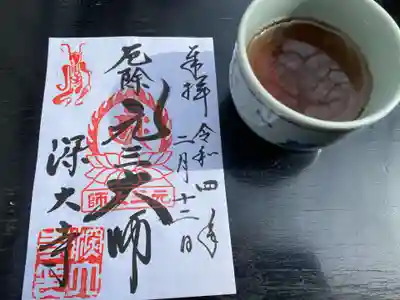 奉拝 令和四年
二月十二日
厄除
元三大師
深大寺
元三大師